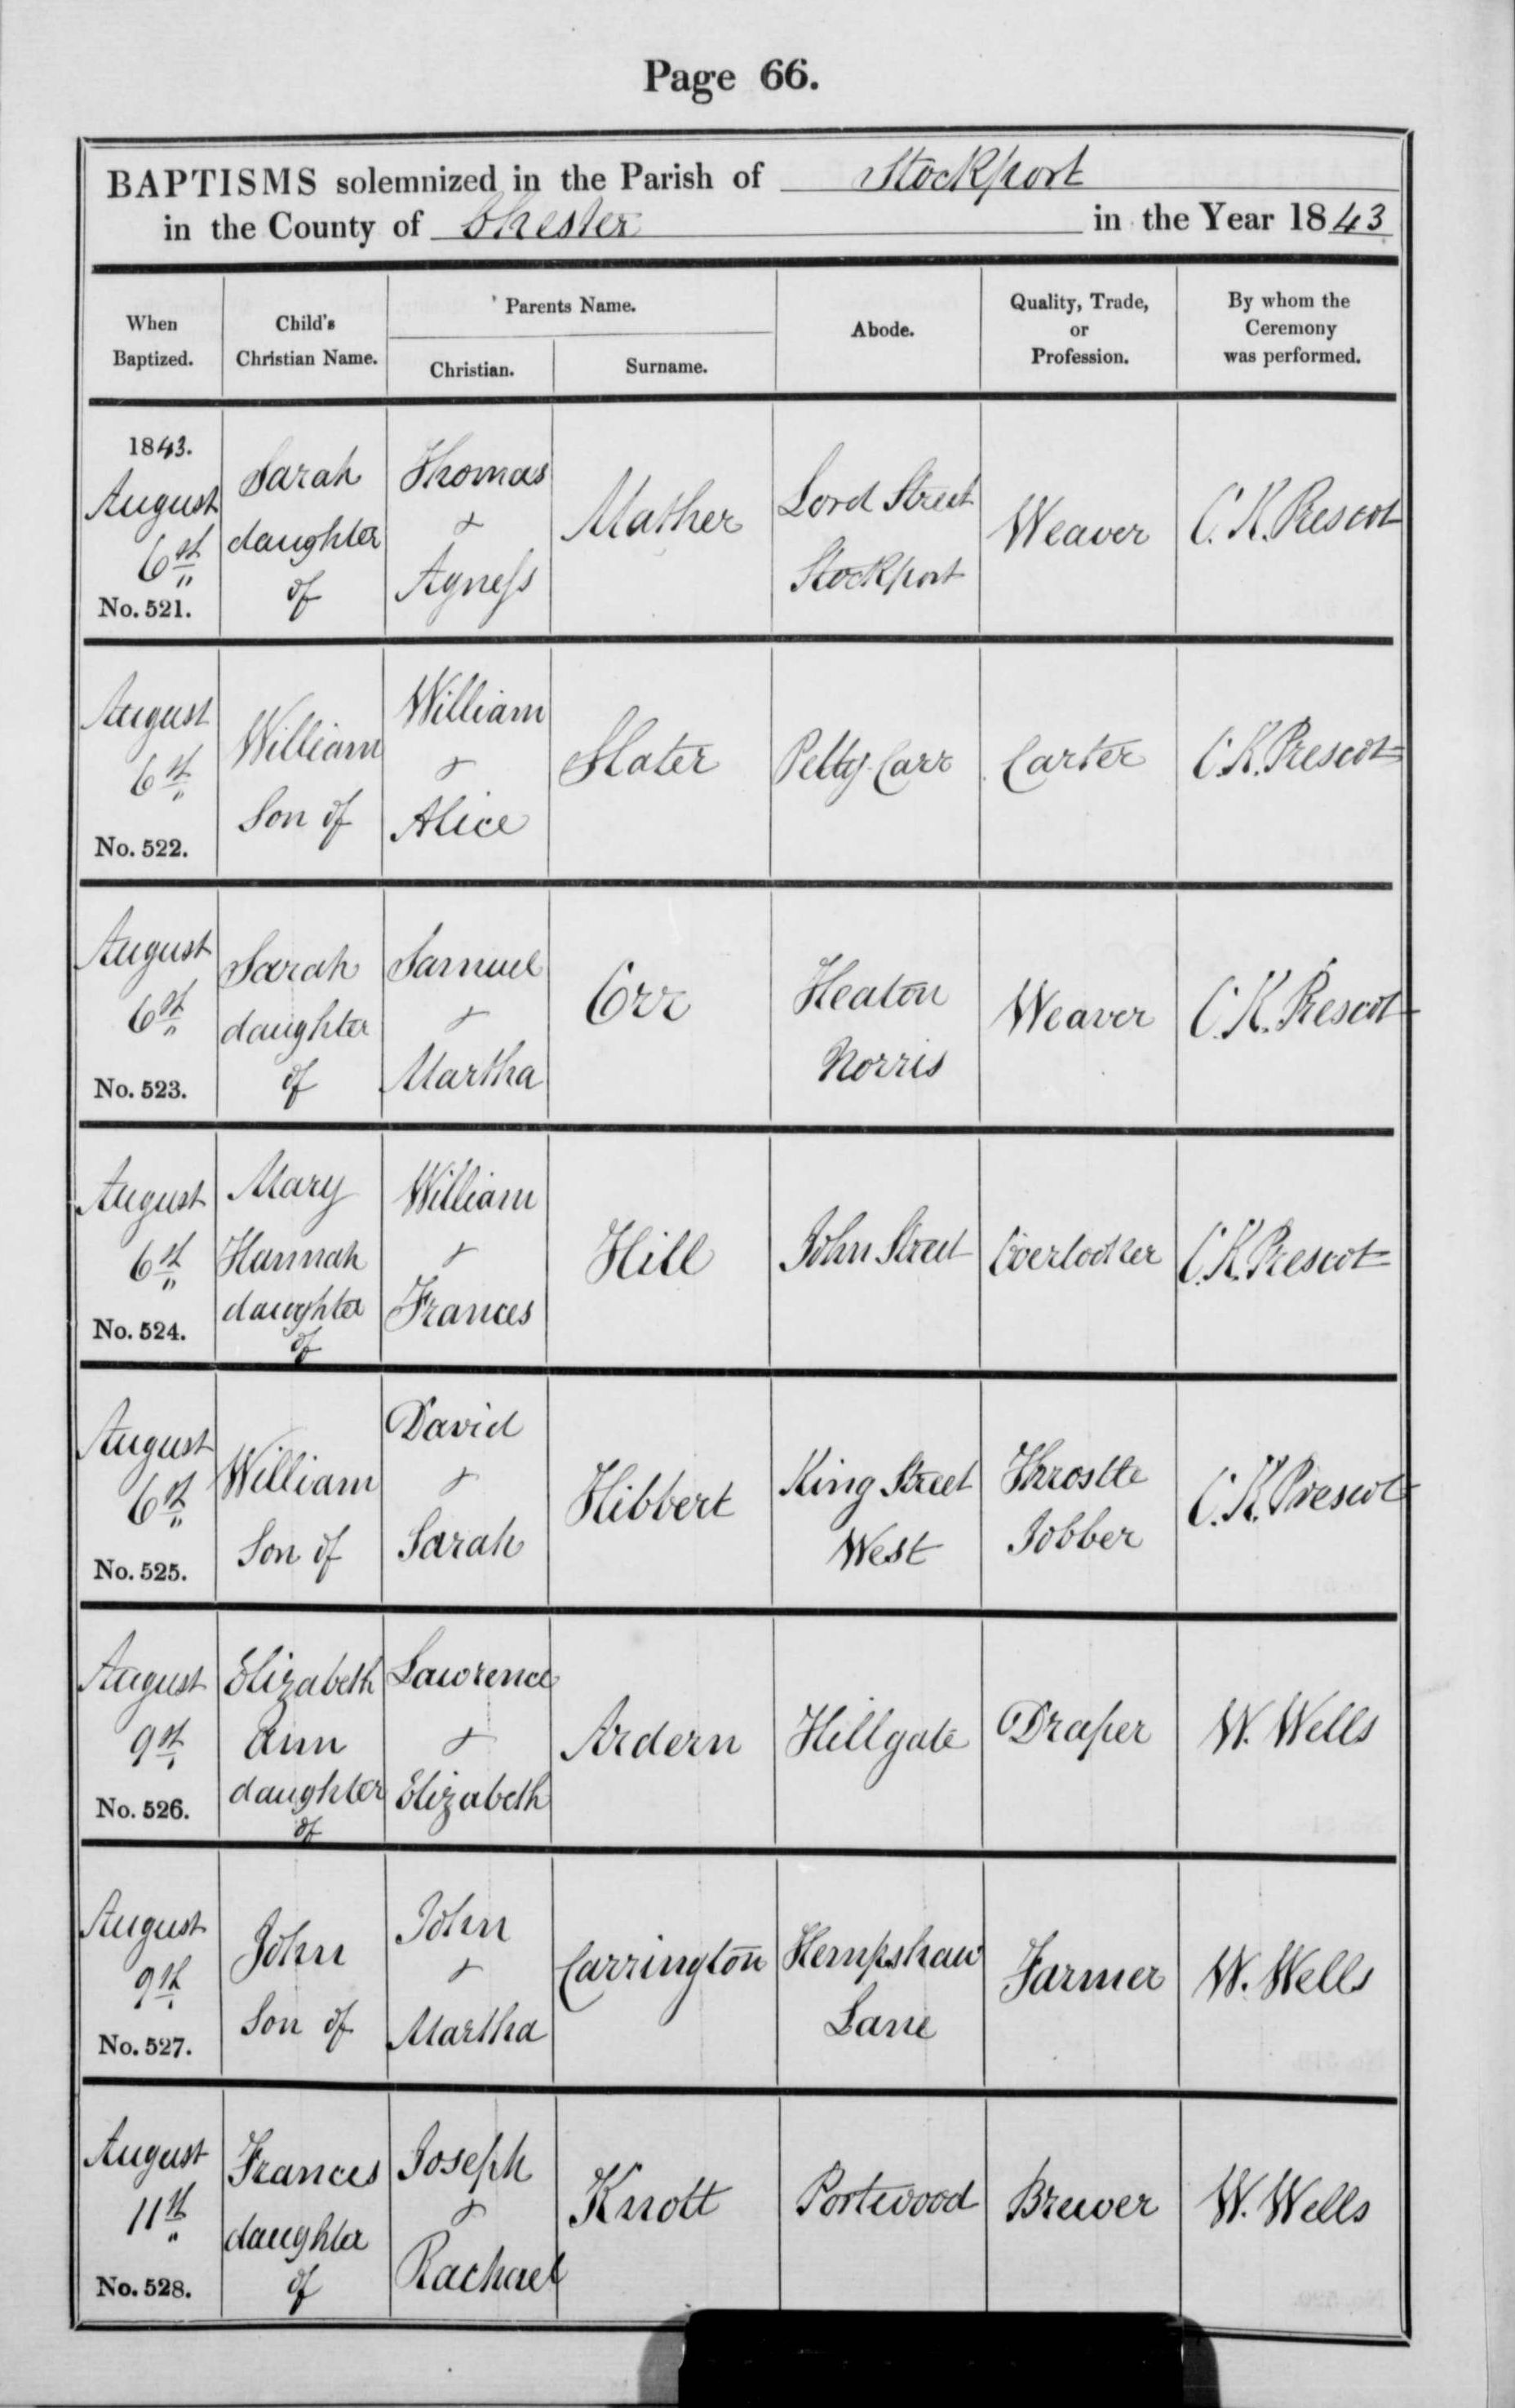 Page 66.
BAPTISMS solemnized in the Parish of Stockport
in the County of Chester in the Year 1843
When Baptized.
Child's Christian Name.
Parents Name.
Christian.
Surname.
Abode.
Quality, Trade, or Profession.
By whom the Ceremony was performed.
1843.
August
6th
No. 521.
Sarah
daughter
of
Thomas
&
Agness
Mather
Lord Street
Stockport
Weaver
C. K. Prescot
August
6th
No. 522.
William
Son of
William
&
Alice
Slater
Petty Carr
Carter
C. K. Prescot
August
6th
No. 523.
Sarah
daughter
of
Samuel
&
Martha
Orr
Heaton
Norris
Weaver
C. K. Prescot
August
6th
No. 524.
Mary
Hannah
daughter
of
William
&
Frances
Hill
John Street
Overlooker
C. K. Prescot
August
6th
No. 525.
William
Son of
David
&
Sarah
Hibbert
King Street
West
Throstle
Jobber
C. K. Prescot
August
9th
No. 526.
Elizabeth
Ann
daughter
of
Lawrence
&
Elizabeth
Ardern
Hillgate
Draper
W. Wells
August
9th
No. 527.
John
Son of
John
&
Martha
Carrington
Hempshaw
Lane
Farmer
W. Wells
August
11th
No. 528.
Frances
daughter
of
Joseph
&
Rachael
Knott
Portwood
Brewer
W. Wells